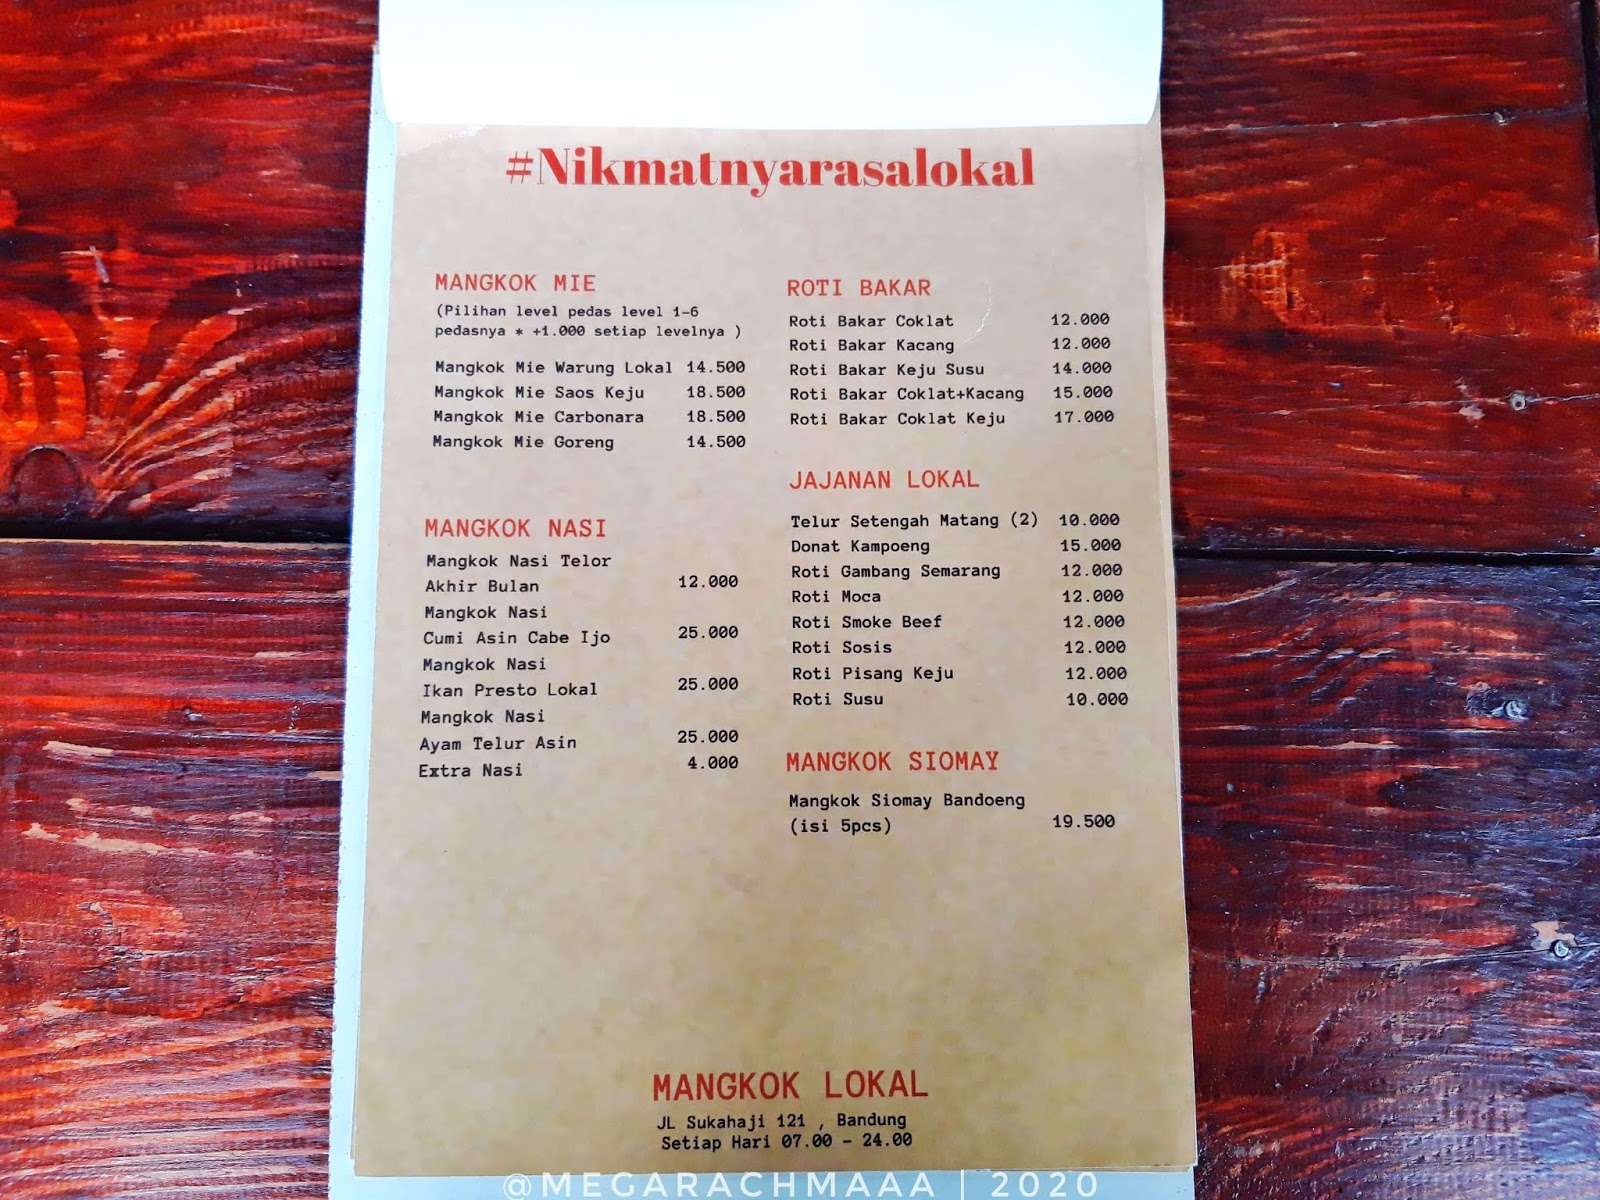 #Nikmatnyarasalokal
MANGKOK MIE
(Pilihan level pedas level 1-6
pedasnya * +1.000 setiap levelnya )
Mangkok Mie Warung Lokal 14.500
Mangkok Mie Saos Keju 18.500
Mangkok Mie Carbonara 18.500
Mangkok Mie Goreng 14.500
MANGKOK NASI
Mangkok Nasi Telor
Akhir Bulan 12.000
Mangkok Nasi
Cumi Asin Cabe Ijo 25.000
Mangkok Nasi
Ikan Presto Lokal 25.000
Mangkok Nasi
Ayam Telur Asin 25.000
Extra Nasi 4.000
ROTI BAKAR
Roti Bakar Coklat 12.000
Roti Bakar Kacang 12.000
Roti Bakar Keju Susu 14.000
Roti Bakar Coklat+Kacang 15.000
Roti Bakar Coklat Keju 17.000
JAJANAN LOKAL
Telur Setengah Matang (2) 10.000
Donat Kampoeng 15.000
Roti Gambang Semarang 12.000
Roti Moca 12.000
Roti Smoke Beef 12.000
Roti Sosis 12.000
Roti Pisang Keju 12.000
Roti Susu 10.000
MANGKOK SIOMAY
Mangkok Siomay Bandoeng
(isi 5pcs) 19.500
MANGKOK LOKAL
JL Sukahaji 121 , Bandung
Setiap Hari 07.00 - 24.00
@MEGARACHMAAA | 2020